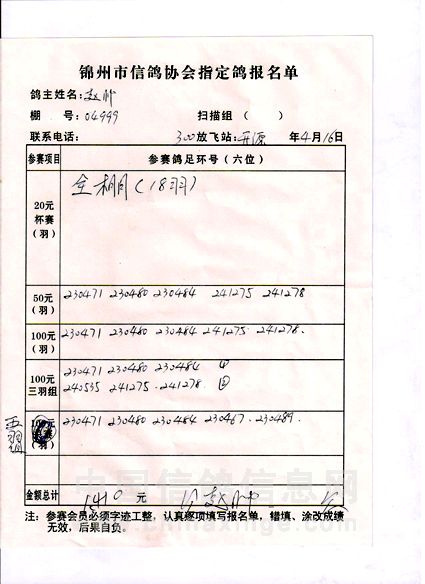 锦州市信鸽协会指定鸽报名单
鸽主姓名:赵帅
棚 号:04999 扫描组 ( )
联系电话: 300放飞站:开源 年4月16日
参赛项目 参赛鸽足环号(六位)
20元杯赛(羽) 全棚(18羽)
50元(羽) 230471 230480 230484 241275 241278
100元(羽) 230471 230480 230484 241275 241278.
100元三羽组 230471 230480 230484 ①
240535 241275 241278 ②
五羽组 (羽) 230471 230480 230484 230467 230489.
金额总计 1410元 赵帅
注:参赛会员必须字迹工整,认真逐项填写报名单,错填、涂改成绩
无效,后果自负。
中国信鸽信息网